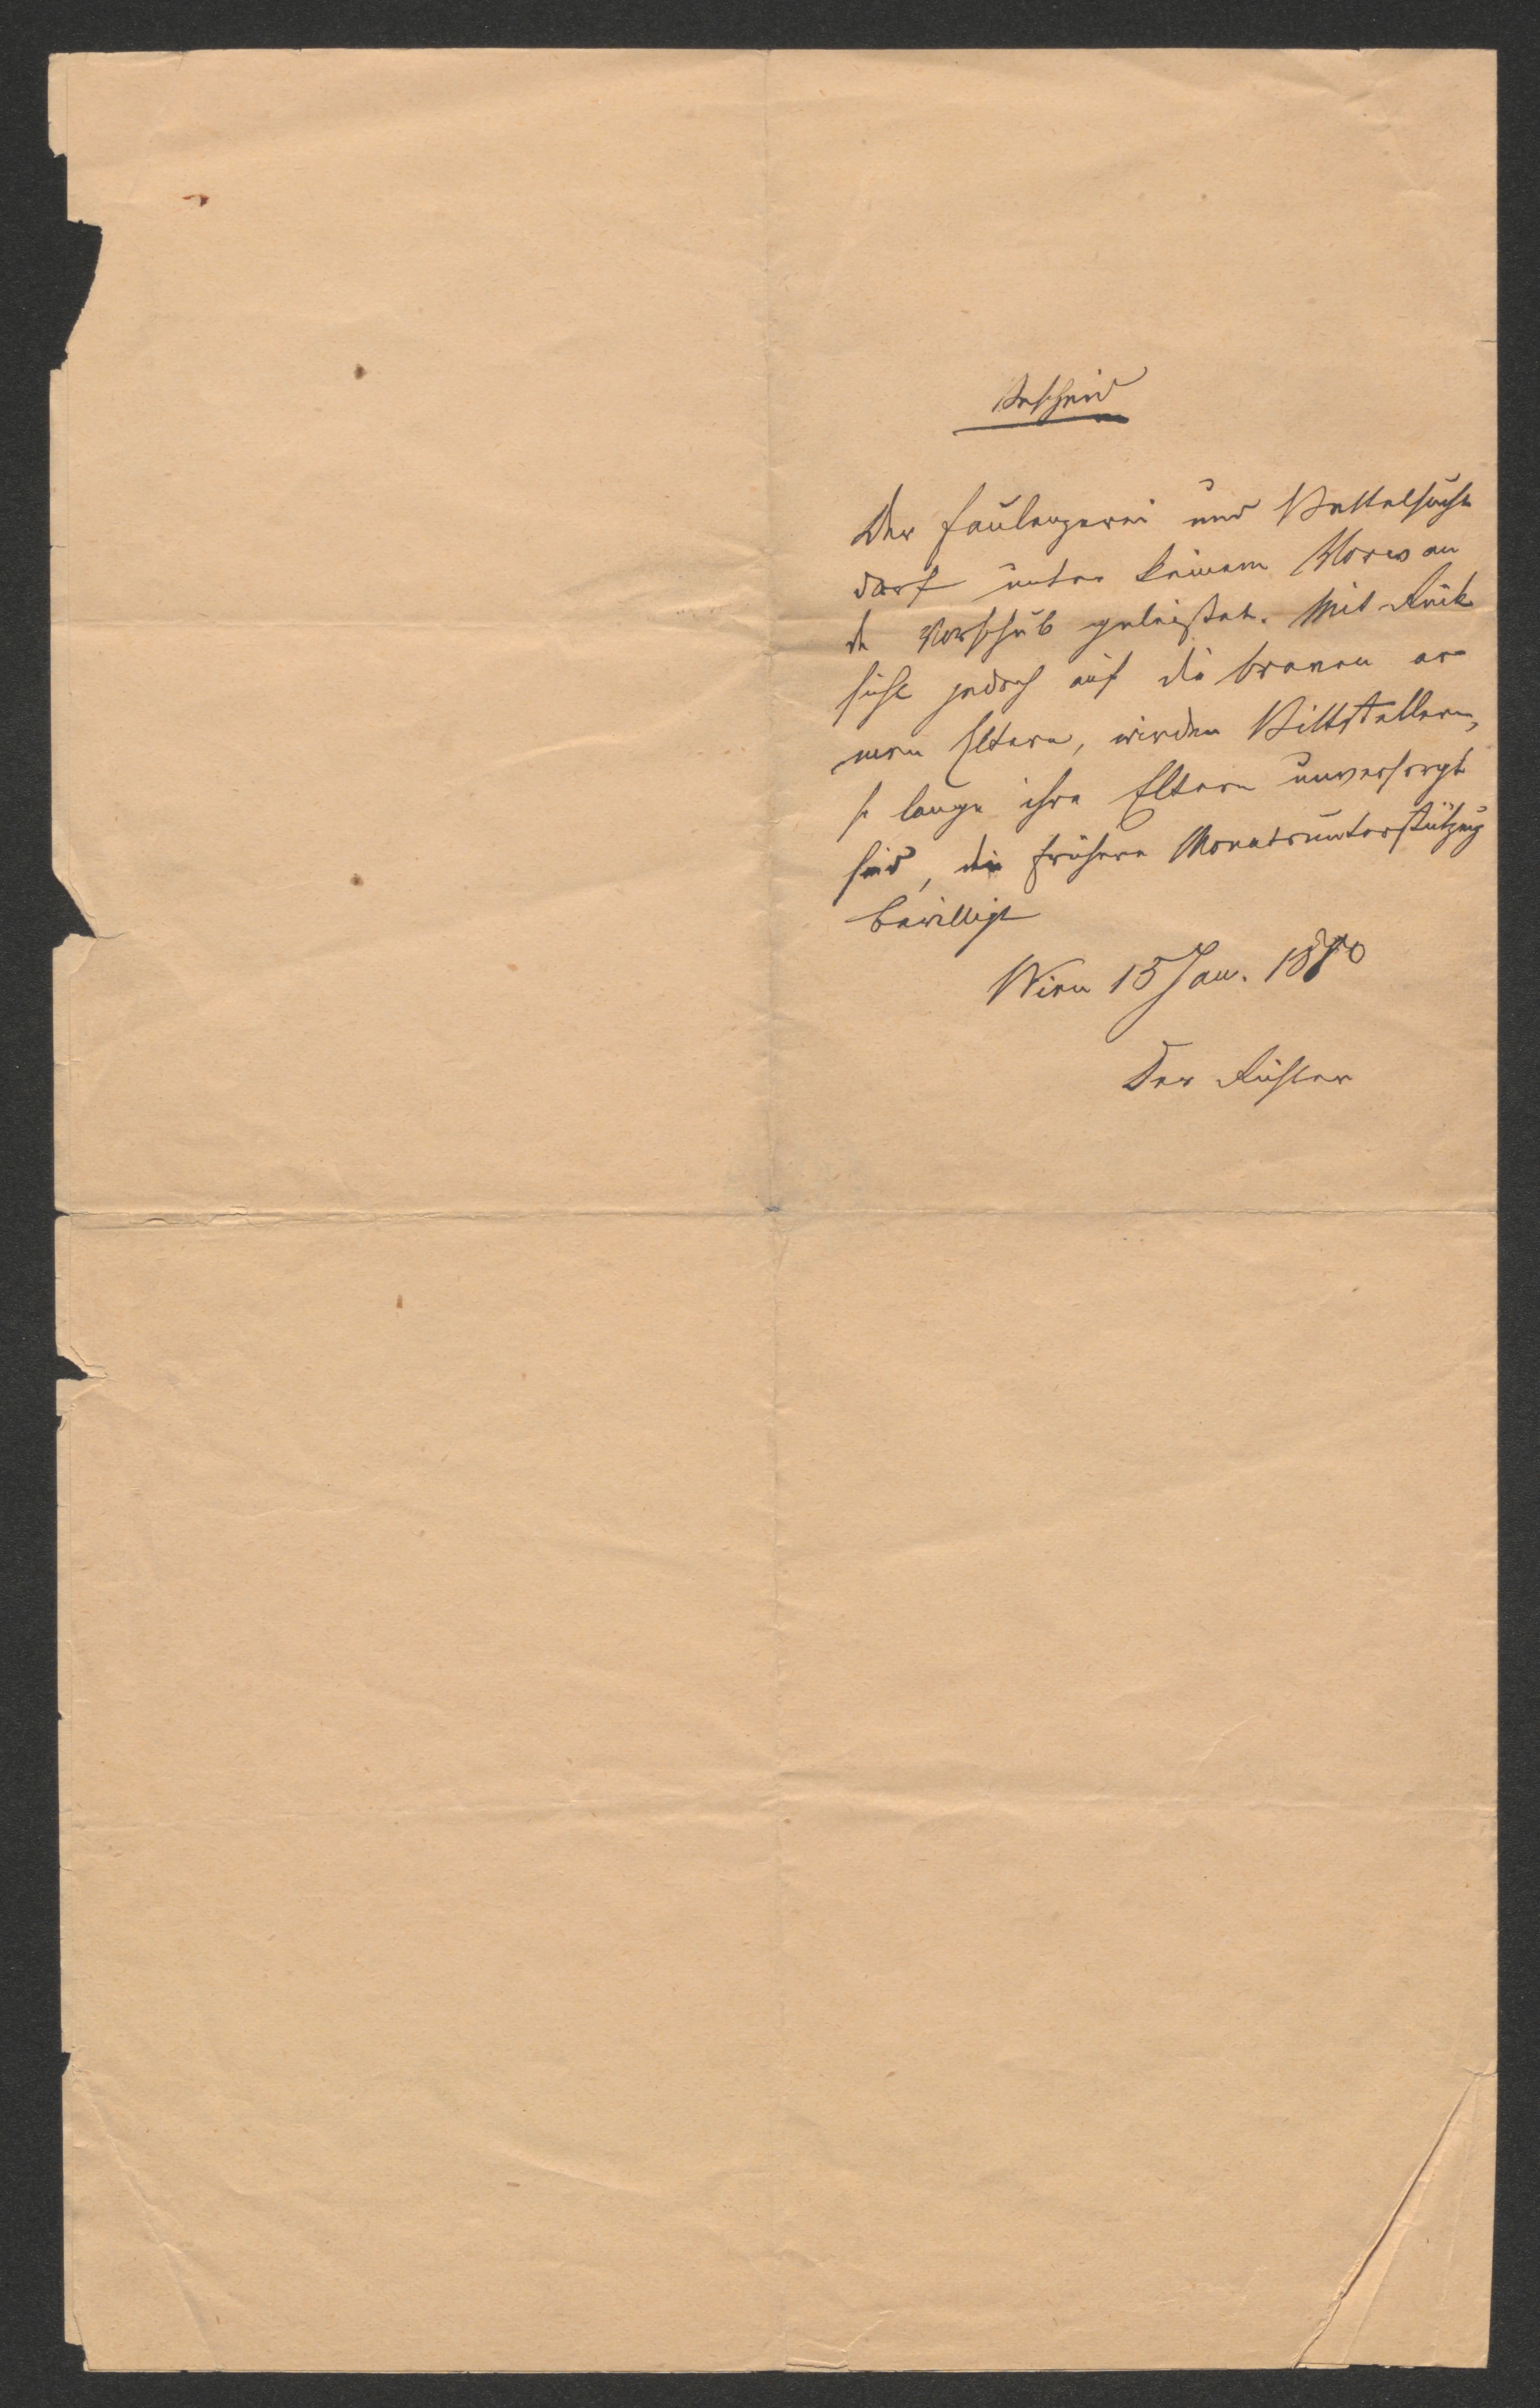 Bescheid
Der Faulenzerei und Bettelsucht
darf unter keinem Vorwan
de Vorschub geleistet. Mit Rück
sicht jedoch auf die braven ar
men Eltern, wird den Bittstellern,
so lange ihre Eltern unversorgt
sind, die frühere Monatsunterstützung
bewilligt
Wien 15 Jan.
Der Richter